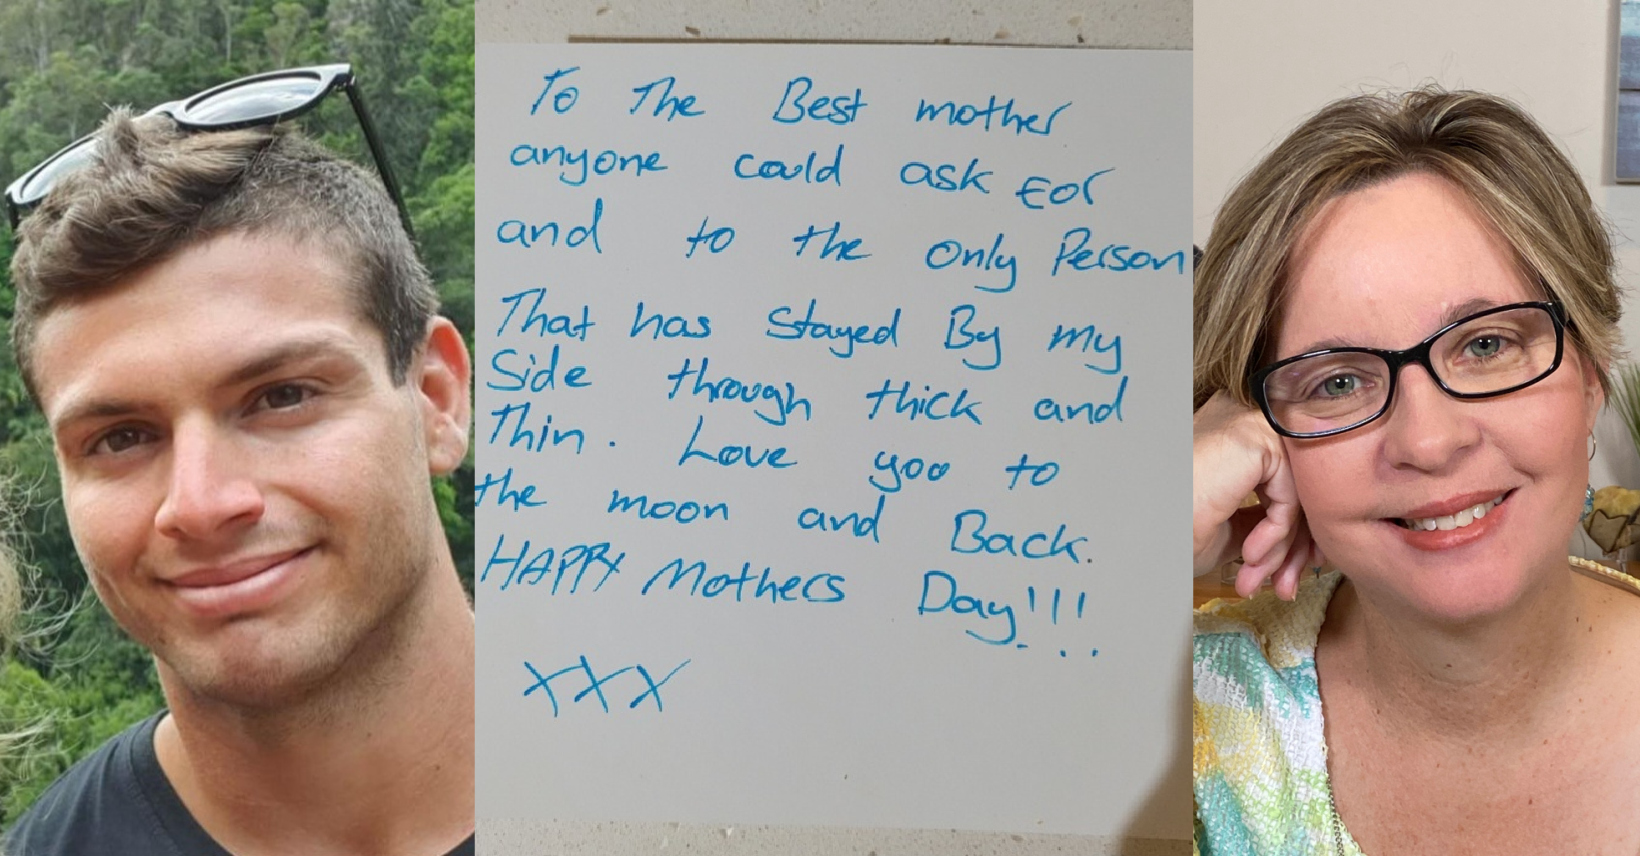 To The Best mother
anyone could ask For
and to the only Person
That has Stayed By my
Side through thick and
Thin. Love you to
the moon and Back.
HAPPY Mothers Day!!!
XXX